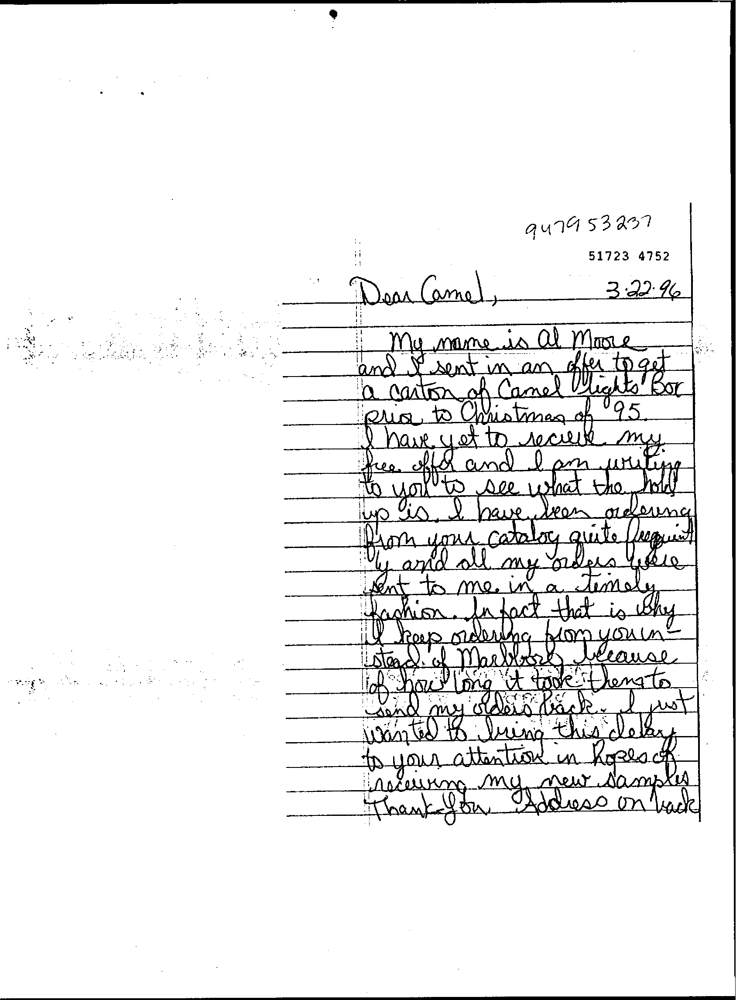 947953237
51723 4752
Dear Camel, 3-22-96
My name is Al Moore
and I sent in an offer to get
a carton of Camel lights Box
prior to Christmas of '95.
I have yet to recieve my
free offer and I am writing
to you to see what the hold
up is. I have been ordering
from your catalog quite frequint
ly and all my orders were
sent to me in a timely
fashion. In fact that is why
I keep ordering from you in-
stead of Marlboro, because
of how long it took them to
send my orders back. I just
wanted to bring this delay
to your attention in hopes of
receiving my new samples
Thank-You. Address on back